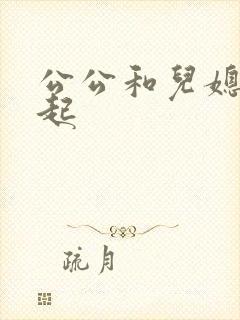 公公和兒媳
起
疏月